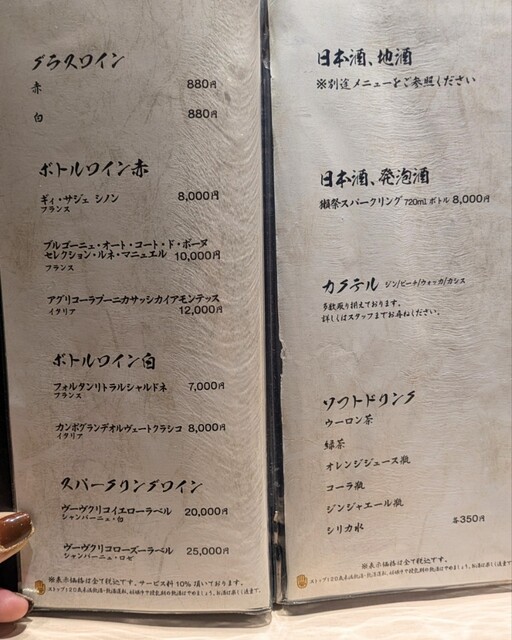 グラスワイン
赤 880円
白 880円
ボトルワイン赤
ギィ・サジェ シノン 8,000円
フランス
ブルゴーニュ・オート・コート・ド・ボーヌ
セレクション・ルネ・マニュエル 10,000円
フランス
アグリコーラプーニカサッシカイアモンテッス
イタリア 12,000円
ボトルワイン白
フォルタンリトラルシャルドネ 7,000円
フランス
カンポグランデオルヴェートクラシコ 8,000円
イタリア
スパークリングワイン
ヴーヴクリコイエローラベル 20,000円
シャンパーニュ・白
ヴーヴクリコローズーラベル 25,000円
シャンパーニュ・ロゼ
※表示価格は全て税込です。サービス料10%頂いております。
日本酒、地酒
※別途メニューをご参照ください
日本酒、発泡酒
獺祭スパークリング 720ml ボトル 8,000円
カクテル ジン/ピーチ/ウォッカ/カシス
多数取り揃えております。
詳しくはスタッフまでお尋ねください。
ソフトドリンク
ウーロン茶
緑茶
オレンジジュース瓶
コーラ瓶
ジンジャエール瓶
シリカ水 各350円
※表示価格は全て税込です。